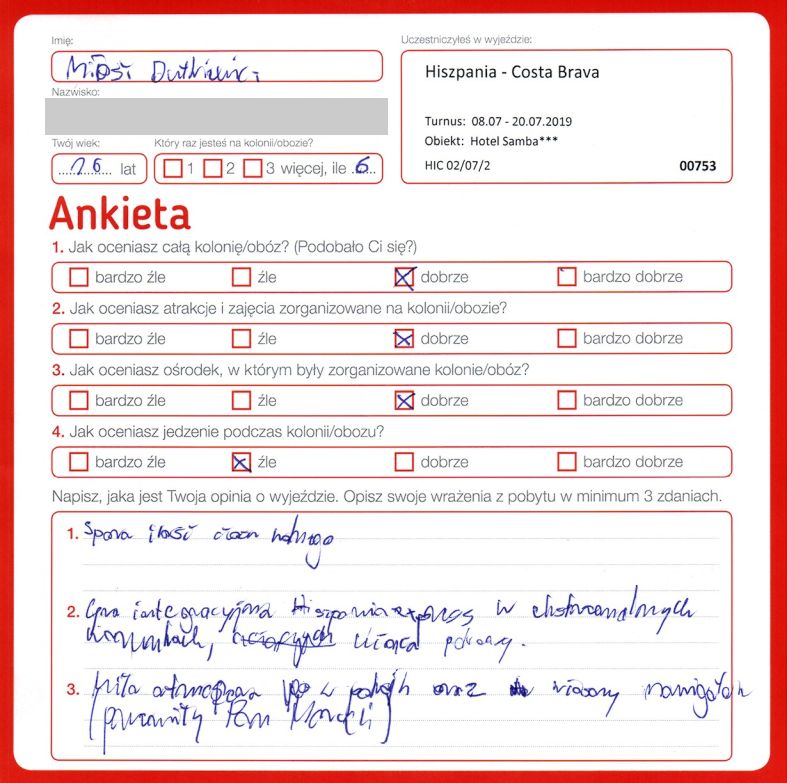 Imię:
Uczestniczyłeś w wyjeździe:
Miłosz
Hiszpania - Costa Brava
Nazwisko:
Turnus: 08.07 - 20.07.2019
Obiekt: Hotel Samba***
HIC 02/07/2 00753
Twój wiek: Który raz jesteś na kolonii/obozie?
16 lat 1 2 3 więcej, ile 6
Ankieta
1. Jak oceniasz całą kolonię/obóz? (Podobało Ci się?)
bardzo źle źle dobrze bardzo dobrze
2. Jak oceniasz atrakcje i zajęcia zorganizowane na kolonii/obozie?
bardzo źle źle dobrze bardzo dobrze
3. Jak oceniasz ośrodek, w którym były zorganizowane kolonie/obóz?
bardzo źle źle dobrze bardzo dobrze
4. Jak oceniasz jedzenie podczas kolonii/obozu?
bardzo źle źle dobrze bardzo dobrze
Napisz, jaka jest Twoja opinia o wyjeździe. Opisz swoje wrażenia z pobytu w minimum 3 zdaniach.
1. Spora ilość czasu wolnego
2. Gra integracyjna w ekstremalnych
warunkach,
3. Miła atmosfera w pokojach oraz